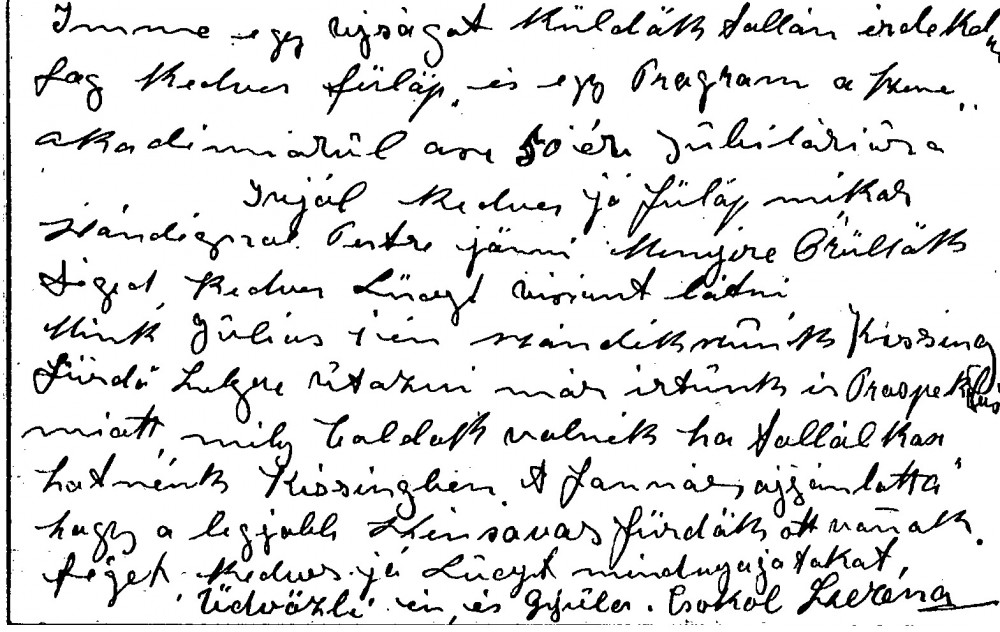 Imme egy ujságot küldök tallán érdekel
fog kedves fülöp, és egy Program a zene
akadimiárúl ase 50 év Jubiláriúsa
Irjál kedves jó fülöp mikor
szándégzol Pestre jönni Menyire Örüllök
téged kedves Lücyt viszont látni
Mink Július 1 én szándékszünk Kissing
fürdő helyre útazni már irtúnk is Prospektus
miatt, mily boldok volnék ha tallálkoz
hatnénk Kissingben, A Jannács ajjánlotta
hogy a legjobb szénsavas fürdők ott vanak.
téget kedves jó Lücyt mindnyájatokat,
Üdvözli én és Gyula. Csokol Szeréna